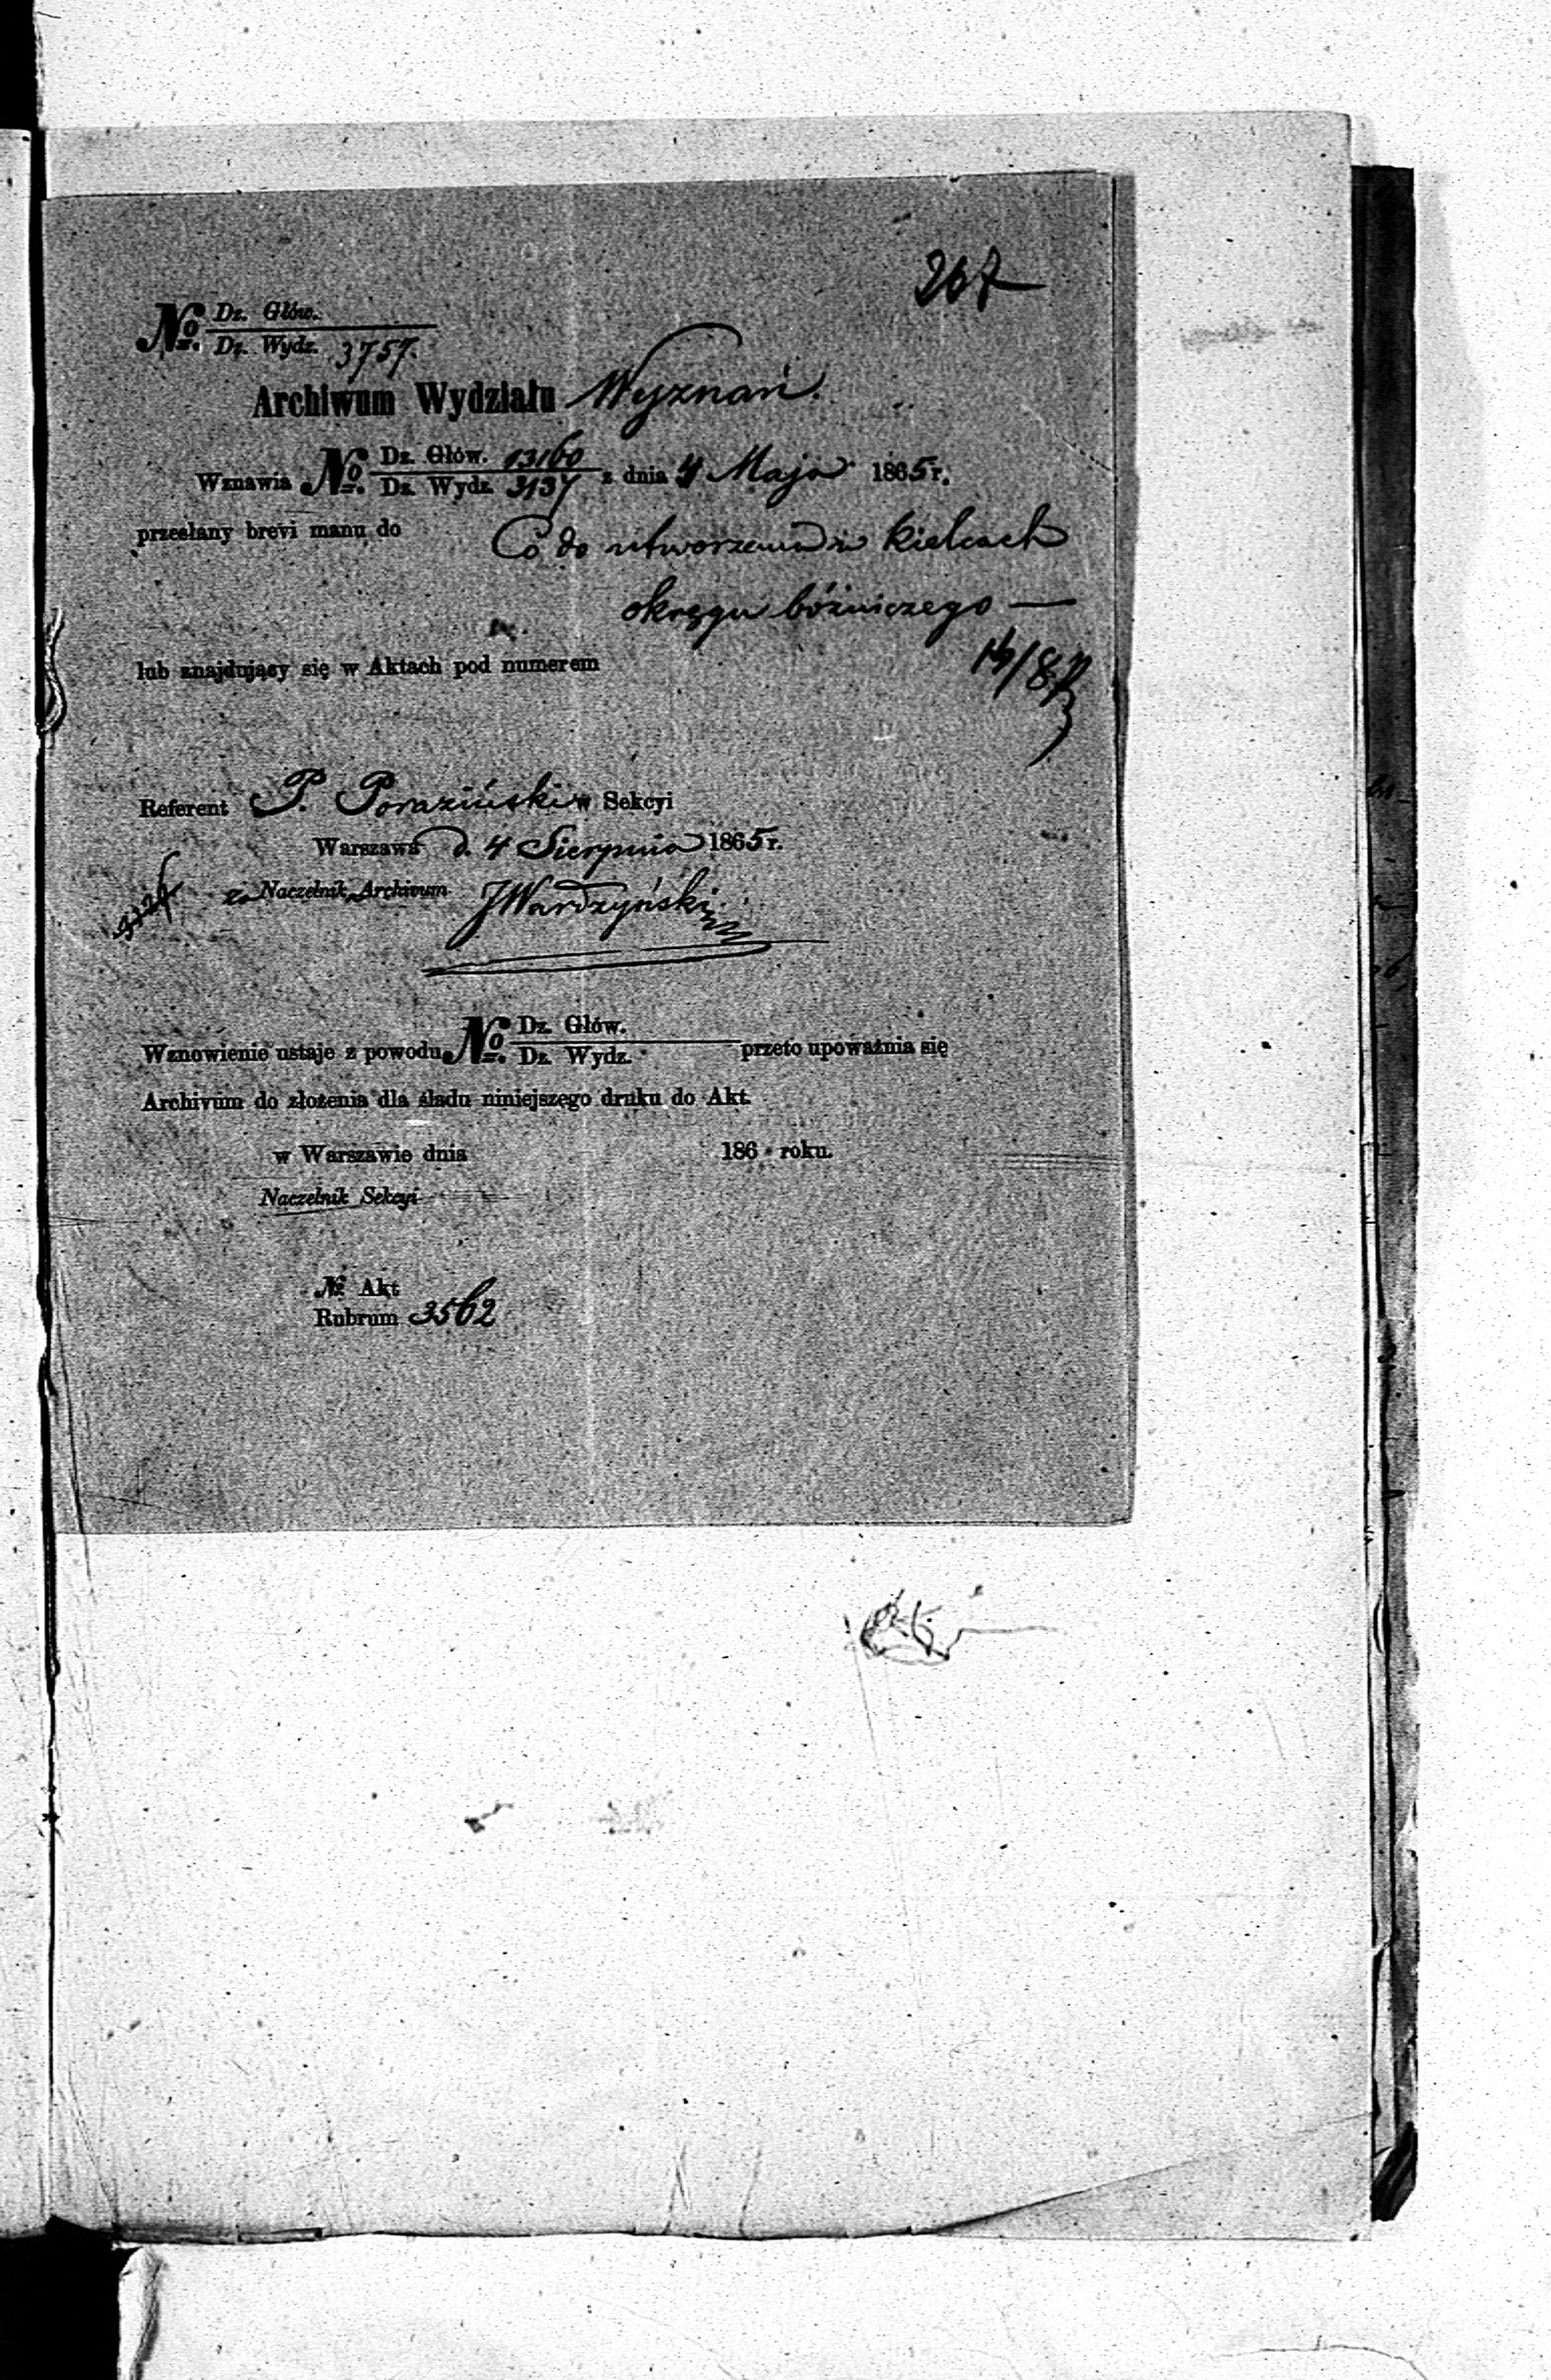 267
№ Dz. Głów.
Dz. Wydz. 3757.
Archiwum Wydziału Wyznań.
Wznawia № Dz. Głów. 13160
Dz. Wydz. 3137 z dnia 4 Maja 1865 r.
przesłany brevi manu do Co do utworzenia w Kielcach
okręgu bóźniczego —
lub znajdujący się w Aktach pod numerem
Referent P. Poraziński w Sekcyi
Warszawa d. 4 Sierpnia 1865 r.
za Naczelnik Archivum JWardzyński
Wznowienie ustaje z powodu № Dz. Głów.
Dz. Wydz. przeto upoważnia się
Archivum do złożenia dla śladu niniejszego druku do Akt.
w Warszawie dnia 186 roku.
Naczelnik Sekcyi
№ Akt
Rubrum 3562